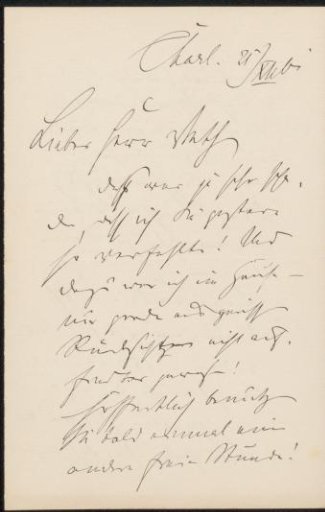 Charl. 21/XII 61
Lieber Herr Vath
daß war ja sehr scha-
de, daß ich Sie gestern
so verfehlte! Und
dazu war ich im Hause –
nur grade aus
Rücksichten nicht auf-
findbar gewesen!
Hoffentlich benutzen
Sie bald einmal eine
andere freie Stunde!